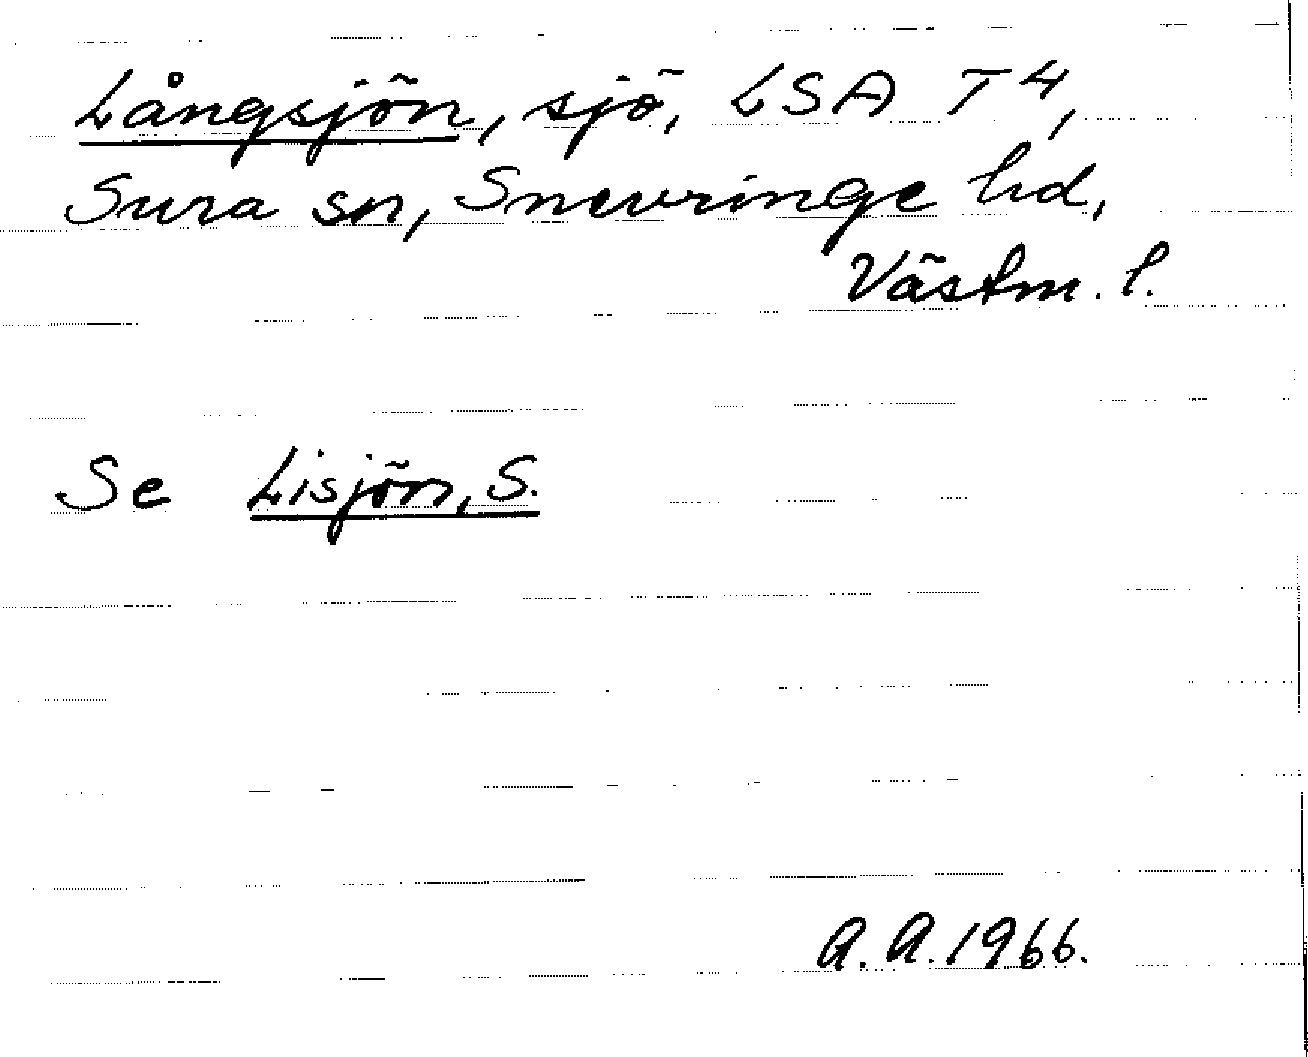 Långsjön, sjö, LSA T4,
Sura sn, Snevringe hd,
Västm. l.
Se Lisjön, S.
A. A. 1966.